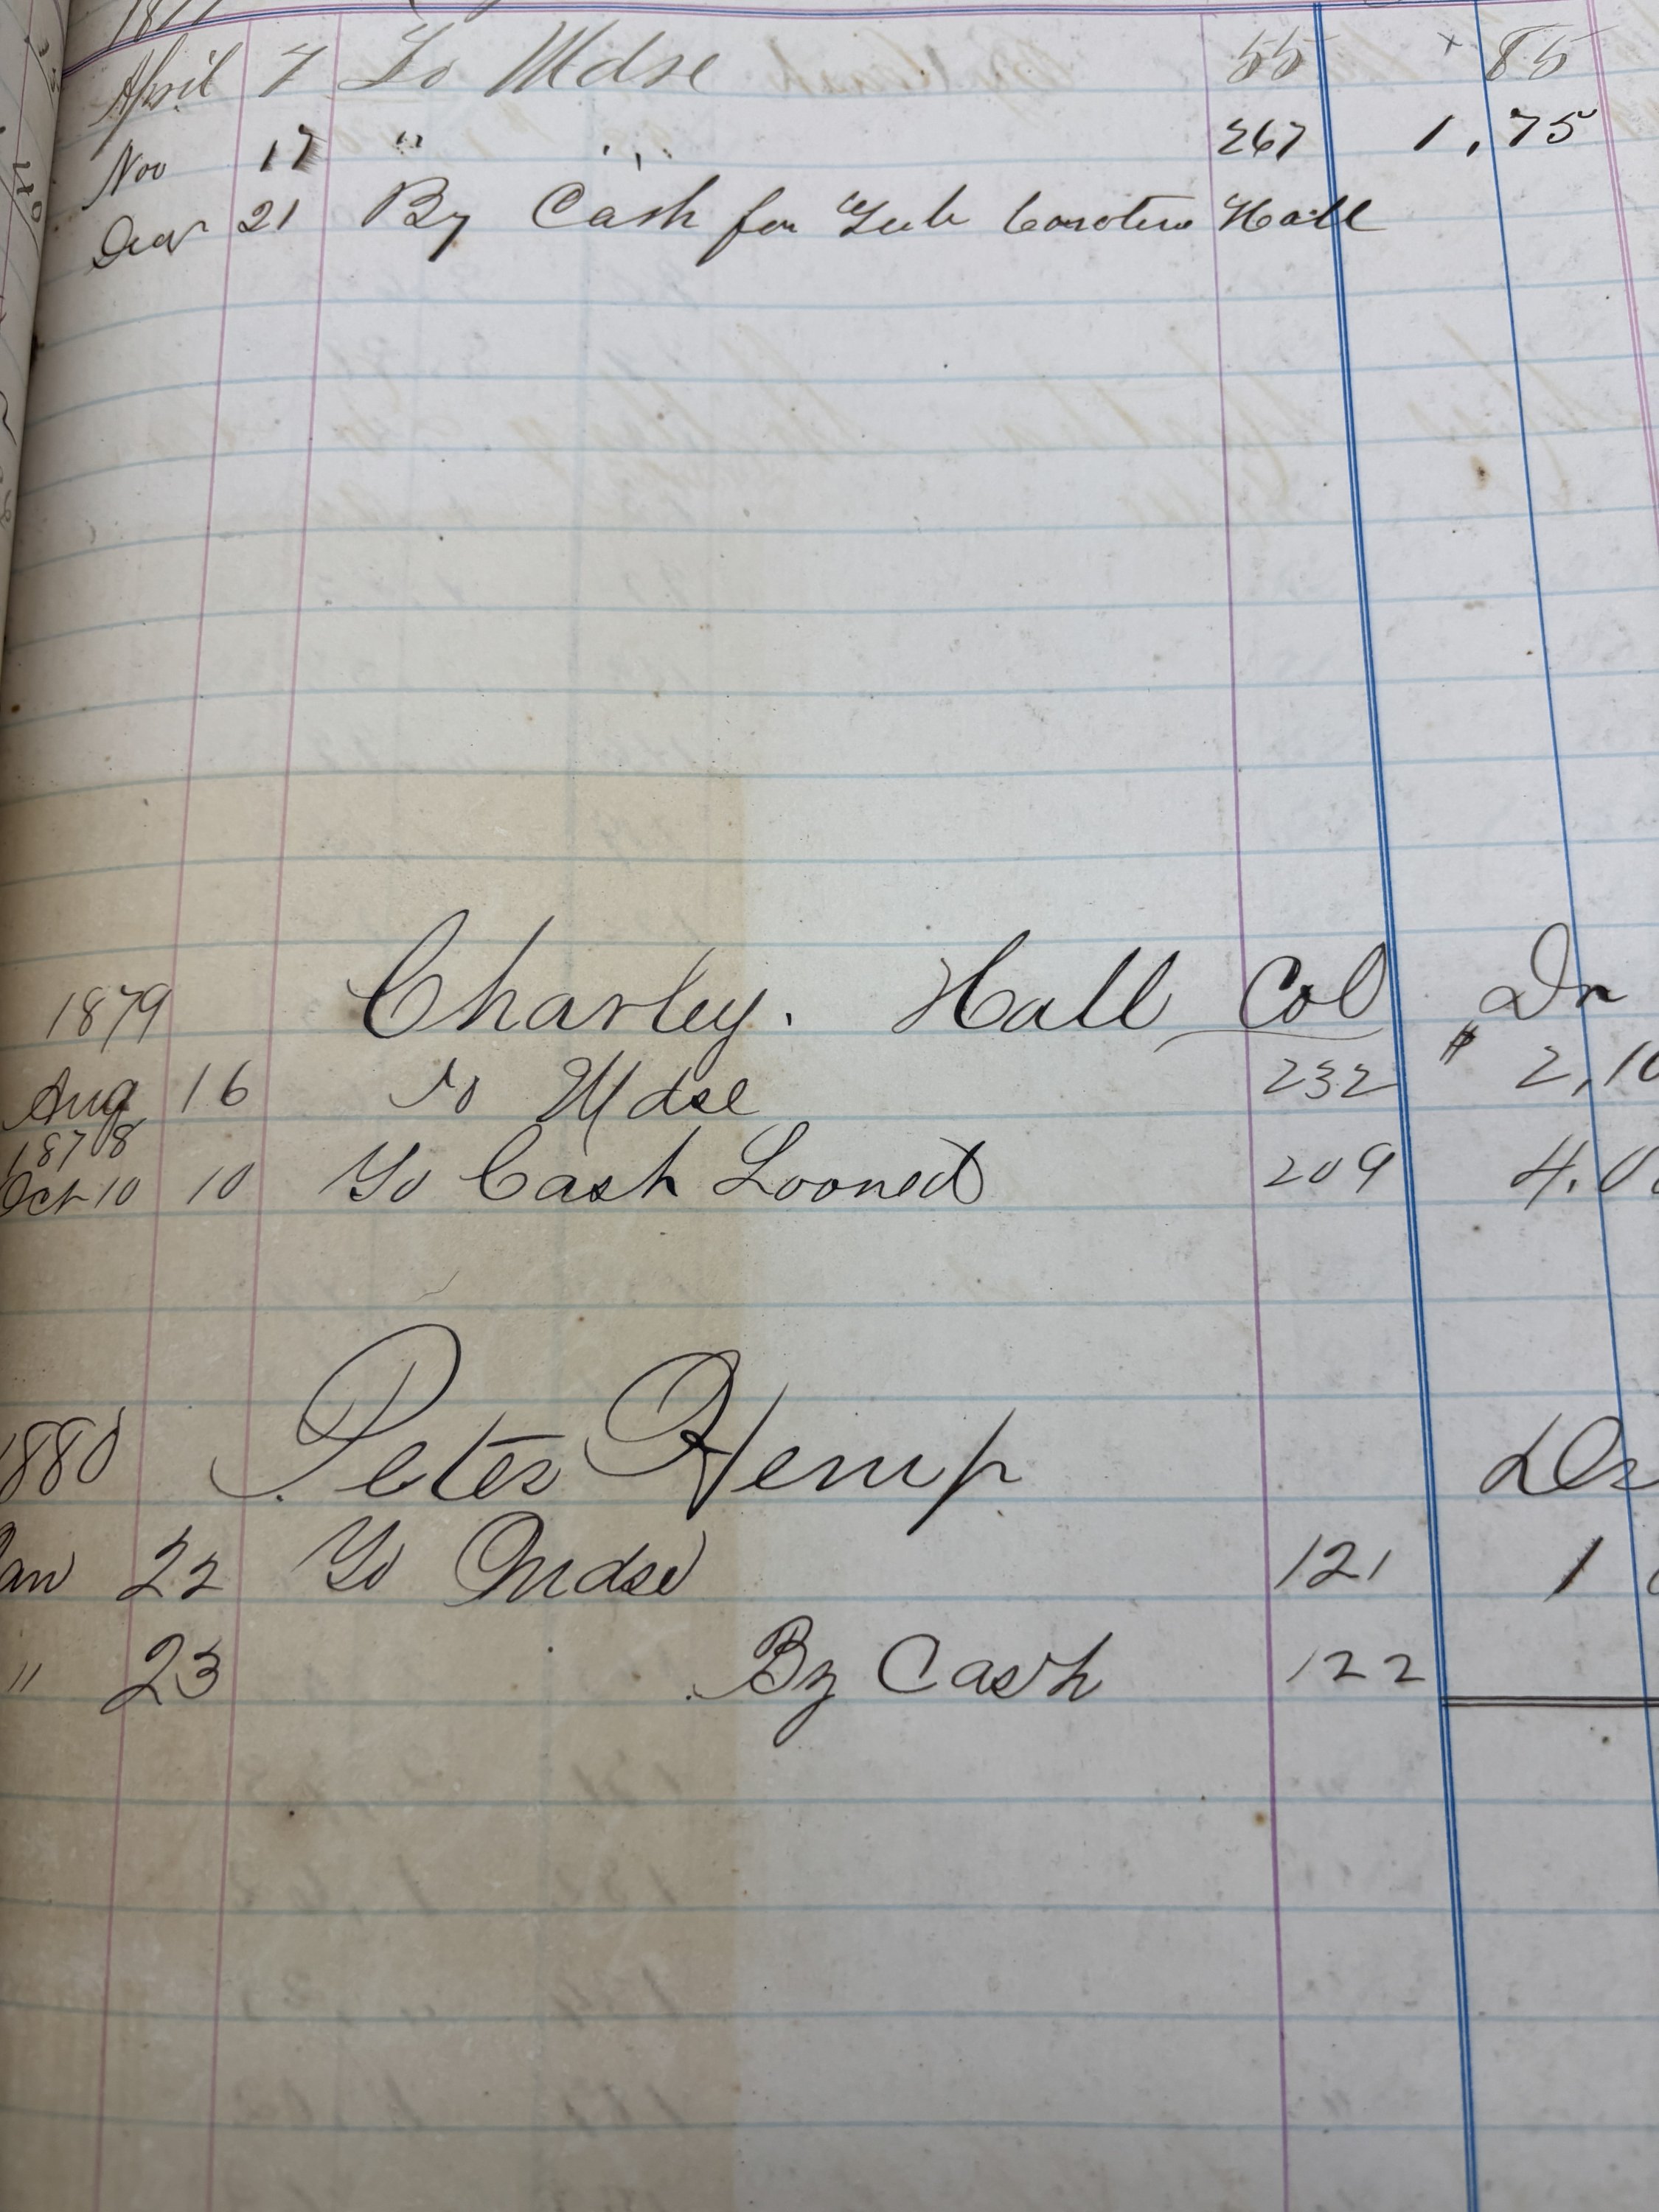 April 7 To Mdse 55 + 85
Nov 17 " " 267 1,75
21 By Cash for Caroline Hall
1879 Charley. Hall Col Dr
Aug 16 To Mdse 232 $ 2,10
1878
Oct 10 10 To Cash Looned 209 4.0
1880 Peter Hemp Dr
an 22 To Mdse 121 1
" 23 By Cash 122